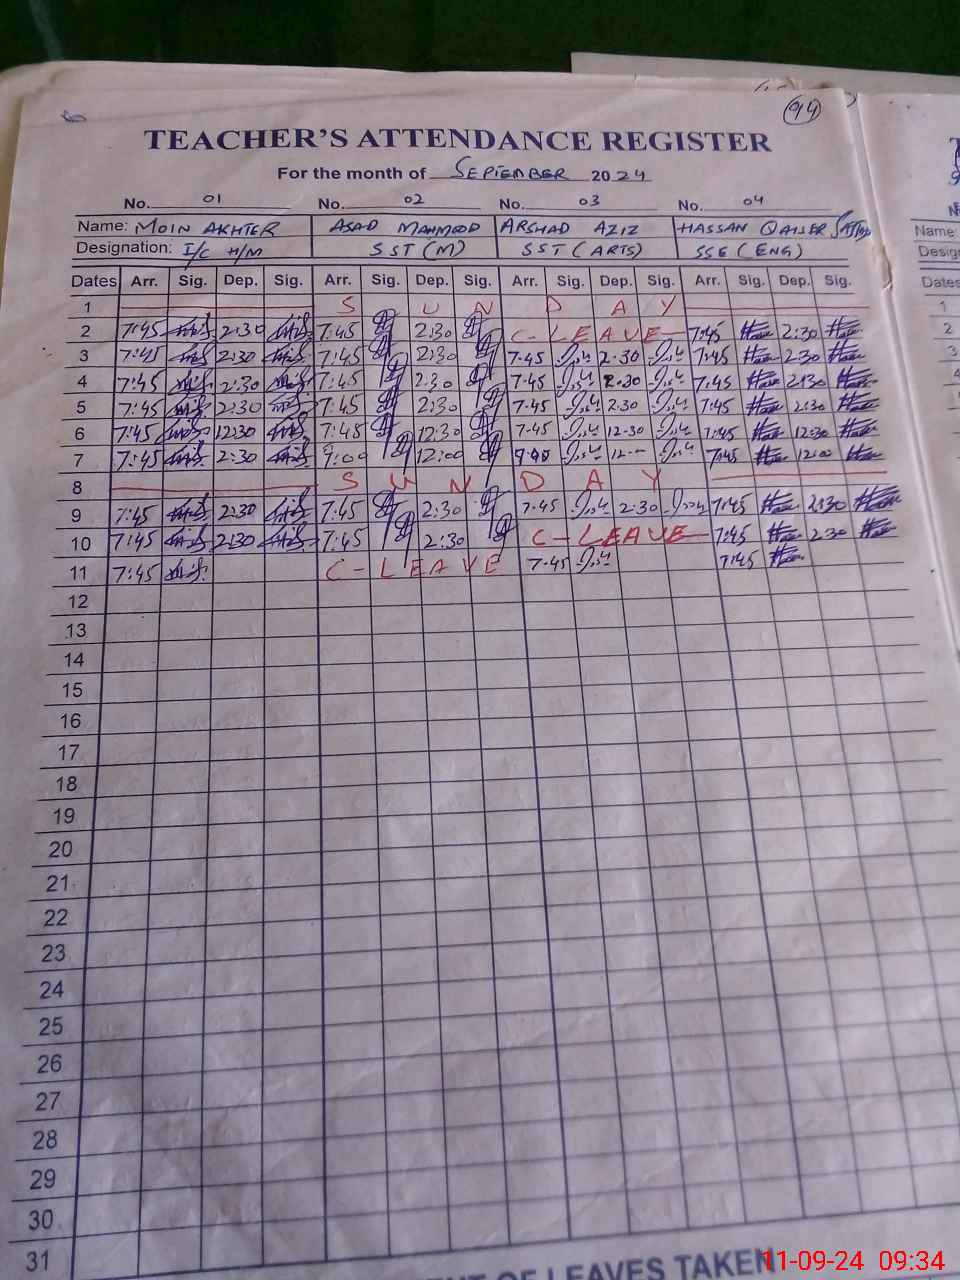 94
TEACHER'S ATTENDANCE REGISTER
For the month of SEPTEMBER 2024
No. 01 No. 02 No. 03 No. 04
Name: MOIN AKHTER ASAD MAHMOOD ARSHAD AZIZ HASSAN QAISER Name:
Designation: I/C H/M SST (M) SST (ARTS) SSE (ENG)
Dates Arr. Sig. Dep. Sig. Arr. Sig. Dep. Sig. Arr. Sig. Dep. Sig. Arr. Sig. Dep. Sig. Dates
1 SUNDAY 1
2 7:45 2:30 7:45 2:30 C-LEAVE 7:45 2:30 2
3 7:45 2:30 7:45 2:30 7-45 2-30 7:45 2:30 3
4 7:45 2:30 7:45 2:30 7-45 2-30 7:45 2:30
5 7:45 2:30 7:45 2:30 7-45 2-30 7:45 2:30
6 7:45 12:30 7:45 12:30 7-45 12-30 7:45 12:30
7 7:45 2:30 12:00 7:45 12:00
8 SUNDAY
9 7:45 2:30 7:45 2:30 7-45 2-30 7:45 2:30
10 7:45 2:30 7:45 2:30 C-LEAVE 7:45 2:30
11 7:45 C-LEAVE 7-45 7:45
12
13
14
15
16
17
18
19
20
21
22
23
24
25
26
27
28
29
30
31
OF LEAVES TAKEN
11-09-24 09:34